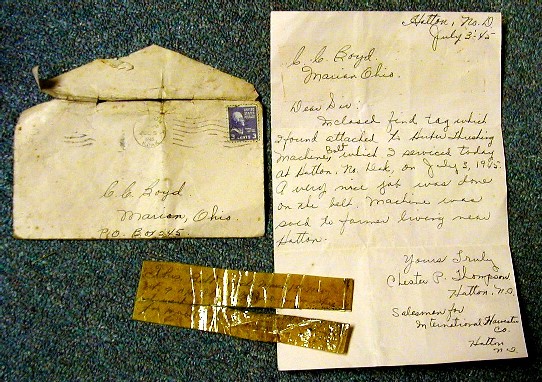 C C Boyd.
Marion, Ohio.
P.O. Box 245.
3 CENTS 3
Hatton, No. D
July 3-'45
C. C. Boyd
Marion Ohio.
Dear Sir:
Inclosed find tag which
I found attached to Huber Threshing
Machine, Belt which I serviced today
at Hatton, No. Dak, on July 3, 1945.
A very nice job was done
on the belt. Machine was
sold to farmer living near
Hatton.
Yours Truly
Chester P. Thompson
Hatton, N.D.
Salesman for
International Harvester
Co.
Hatton
N.D.